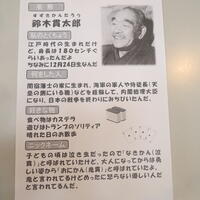 名前
すずきかんたろう
鈴木貫太郎
私のとくちょう
江戸時代の生まれだけ
ど、身長は180センチぐ
らいあったんだよ
ちなみに12月24日生なんだ
何をした人
関宿藩の家に生まれ、海軍の軍人や侍従長(天
皇の側にいる職)などを経験して、内閣総理大臣
になり、日本の戦争を終わりにおちびいたんだ。
好きな物
食べ物はカステラ
遊びはトランプのソリティア
晴れた日のお散歩
ニックネーム
子どもの頃は泣き虫だったので「なきかん(泣
貫)」と呼ばれていたけど、大人になってからは勇
ましい姿から「おにかん(鬼貫)」と呼ばれていたよ。
鬼と言われてるけどめったに怒らない優しい人だ
と言われてるんだ。